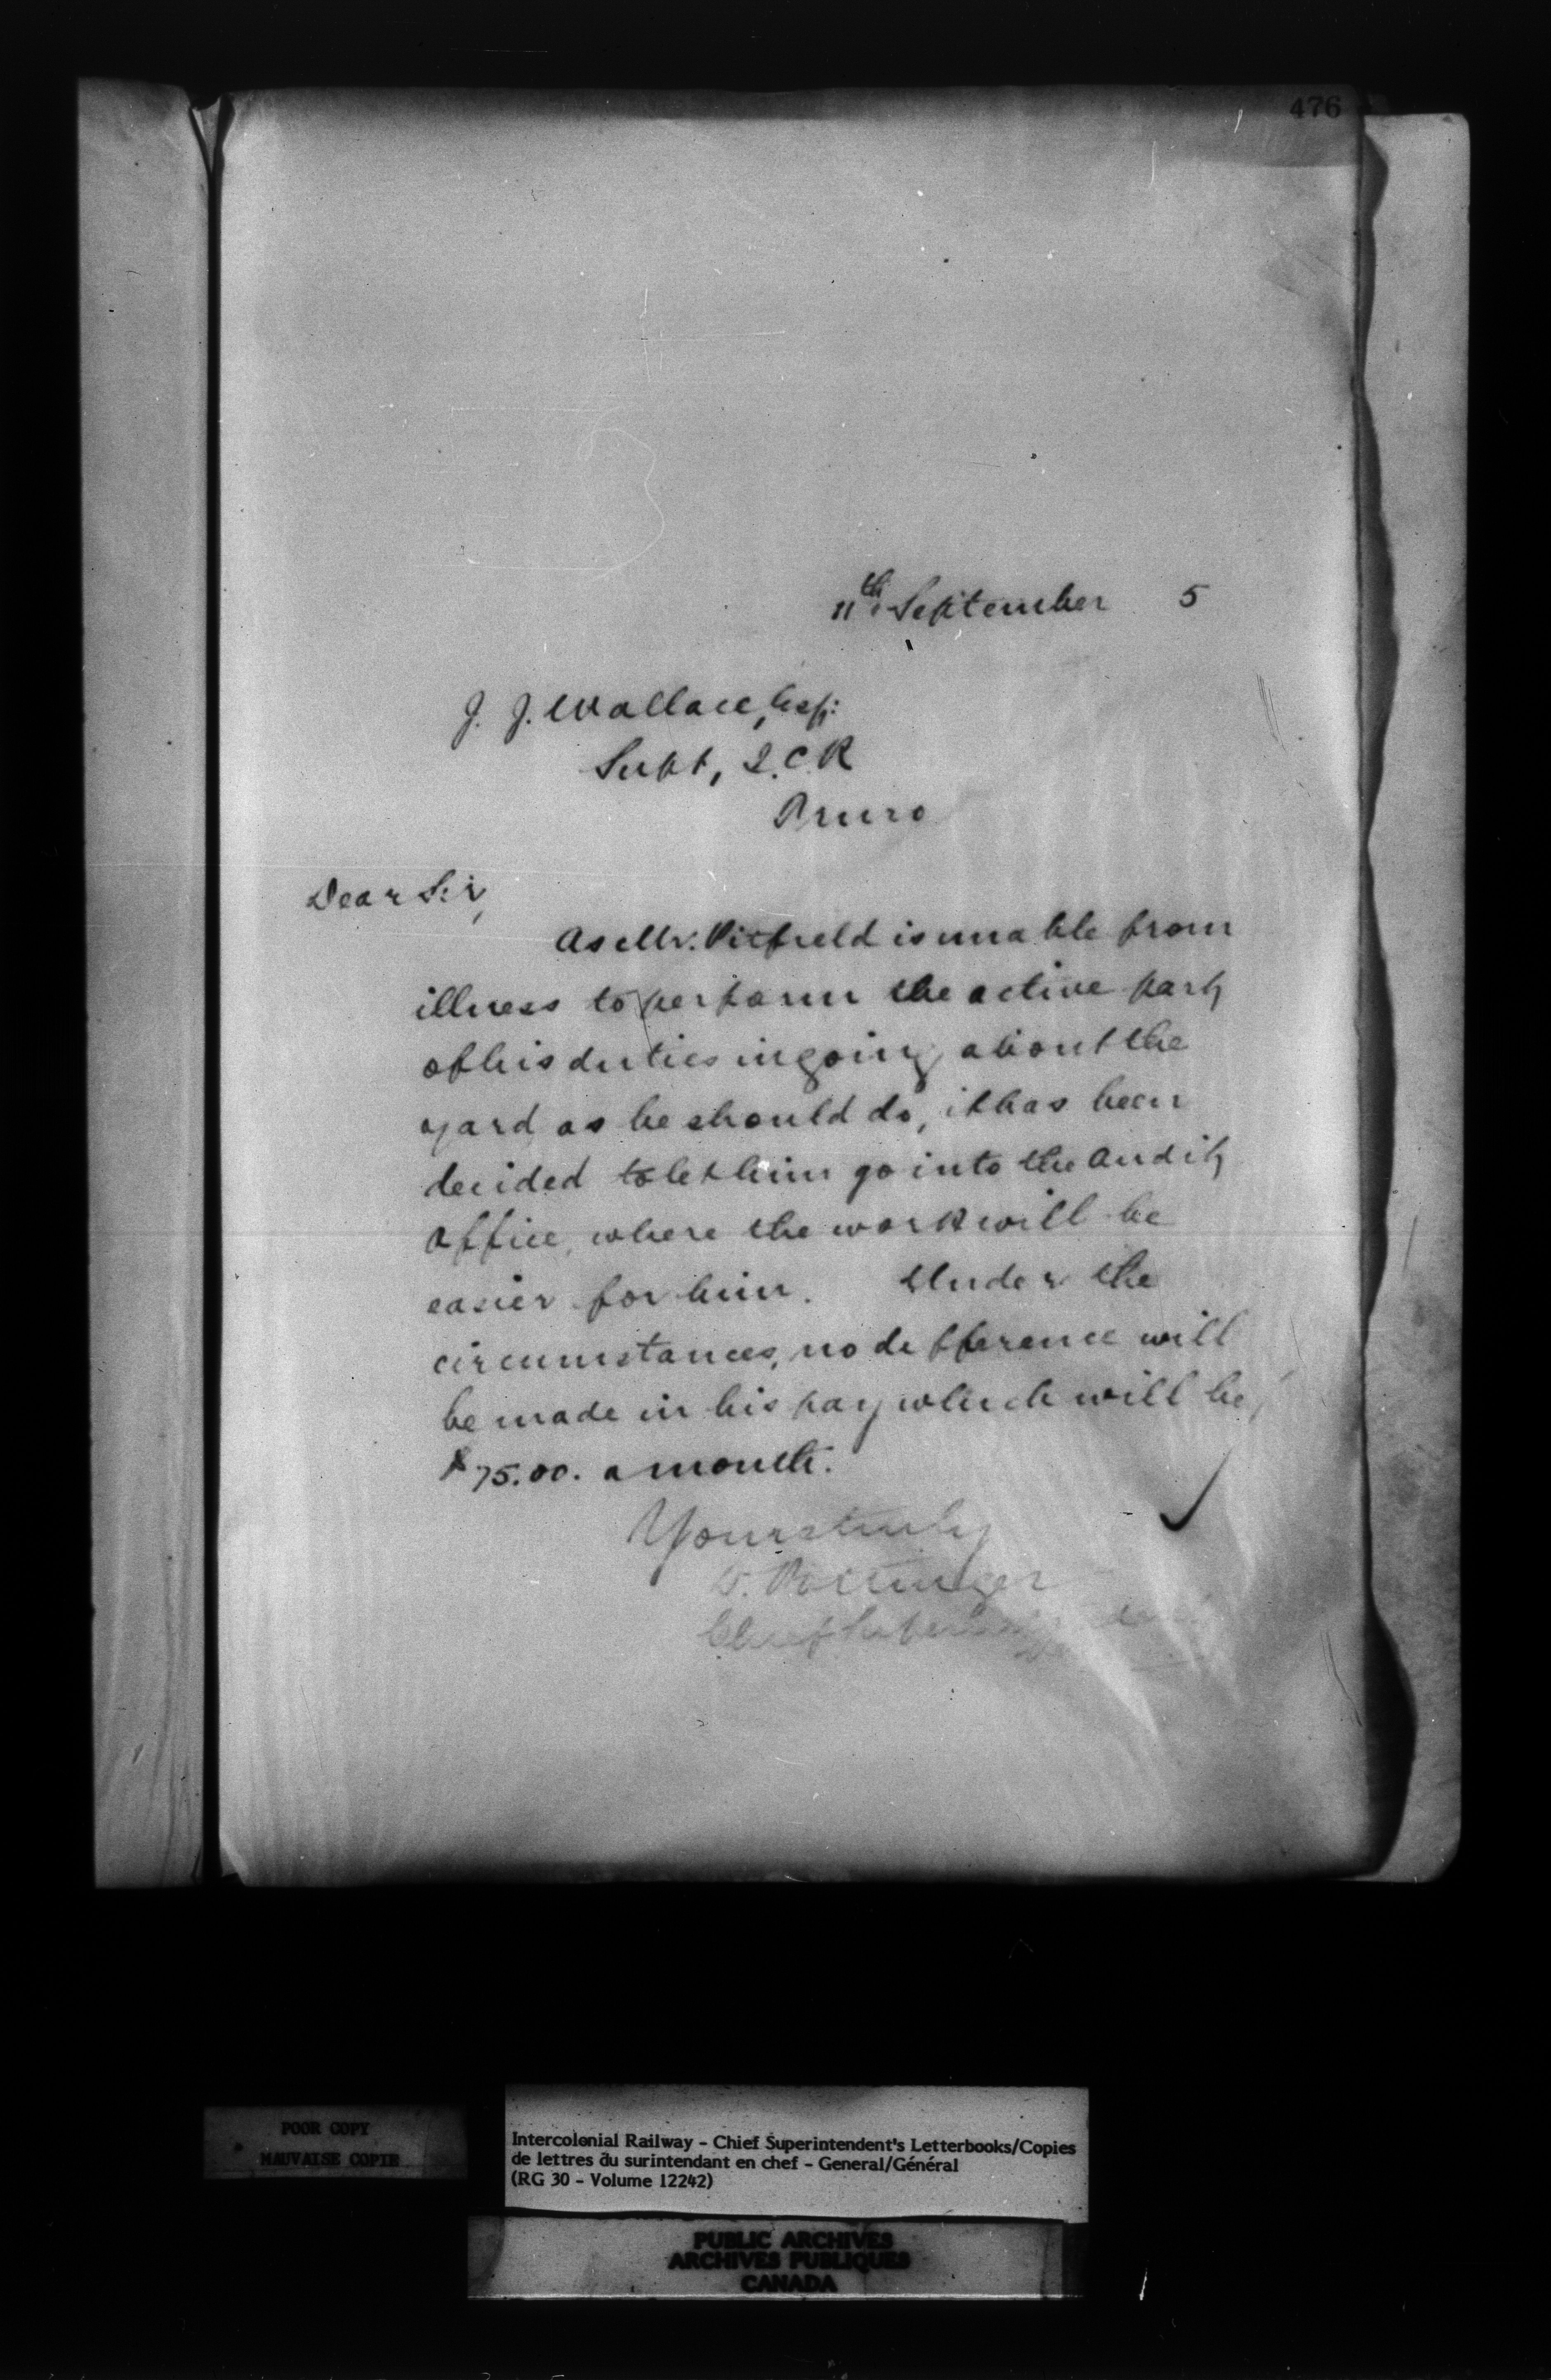 476
11th September 5
J. J. Wallace, Esq:
Supt, I.C.R
Truro
Dear Sir,
As Mr. Pitfield is unable from
illness to perform the active part
of his duties in going about the
yard as he should do, it has been
decided to let him go into the Audit
office, where the work will be
easier for him. Under the
circumstances, no difference will
be made in his pay which will be
$75.00. a month.
Yours truly
D. Pottinger
Chief Superintendent
POOR COPY
MAUVAISE COPIE
Intercolonial Railway - Chief Superintendent's Letterbooks/Copies
de lettres du surintendant en chef - General/Général
(RG 30 - Volume 12242)
PUBLIC ARCHIVES
ARCHIVES PUBLIQUES
CANADA